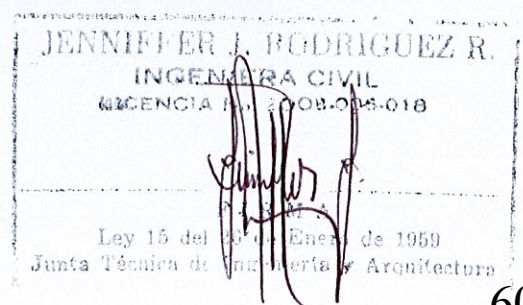 JENNIFFER J. RODRIGUEZ R.
INGENIERA CIVIL
LICENCIA No. 2008-006-018
FIRMA
Ley 15 del 26 de Enero de 1959
Junta Técnica de Ingeniería y Arquitectura
60